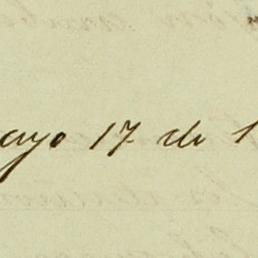 ayo 17 de 1